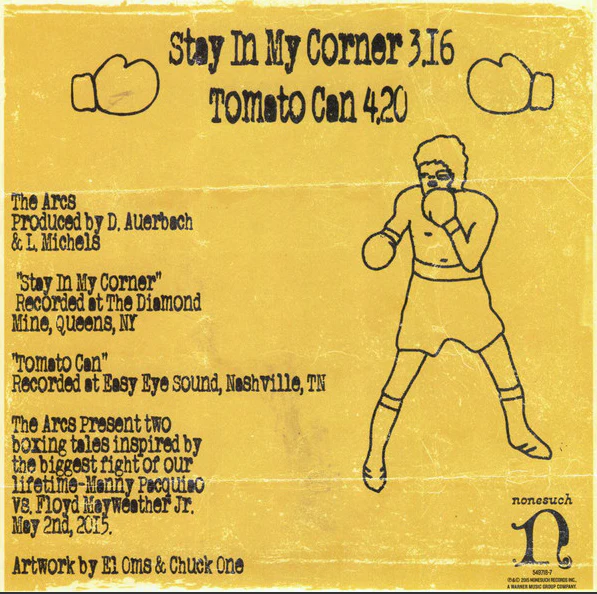 Stay In My Corner 3.16
Tomato Can 4.20
The Arcs
Produced by D. Auerbach
& L. Michels
"Stay In My Corner"
Recorded at The Diamond
Mine, Queens, NY
"Tomato Can"
Recorded at Easy Eye Sound, Nashville, TN
The Arcs Present two
boxing tales inspired by
the biggest fight of our
lifetime-Manny Pacquiao
vs. Floyd Mayweather Jr.
May 2nd, 2015.
Artwork by El Oms & Chuck One
nonesuch
n
549718-7
℗&© 2015 NONESUCH RECORDS INC.,
A WARNER MUSIC GROUP COMPANY.